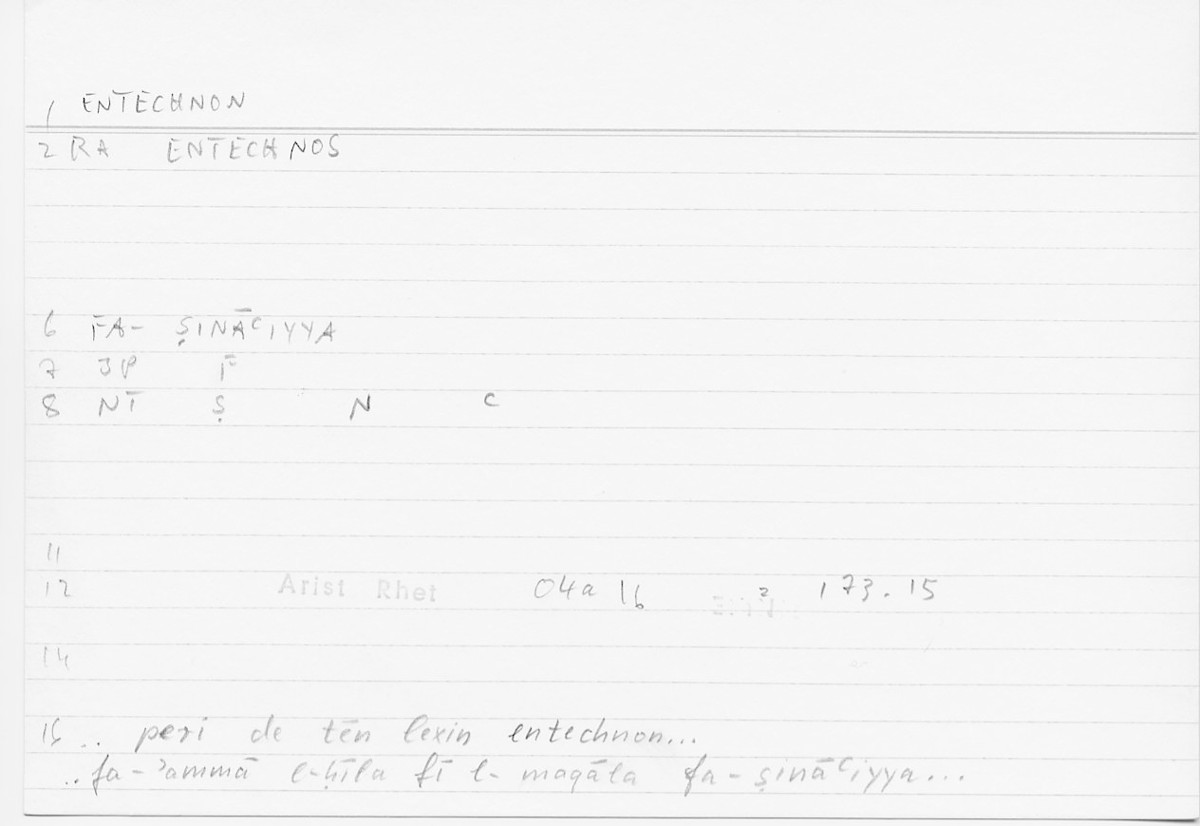 1 ENTECHNON
2 RA ENTECHNOS
6 FA- ṢINĀʿIYYA
7 JP F
8 NT Ṣ N ʿ
11
12 Arist Rhet 04a 16 2 173.15
14
15 .. peri de tēn lexin entechnon...
.. fa-ʾammā l-ḥīla fī l- maqāla fa-ṣināʿiyya...